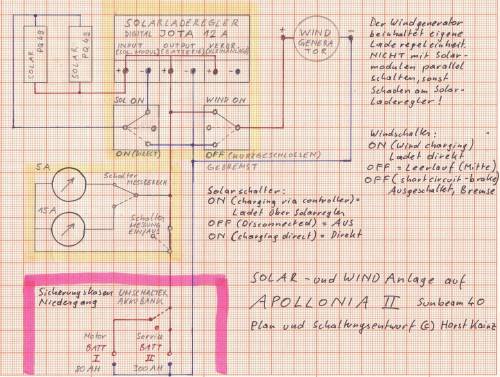 SOLAR
PQ 40
SOLAR
PQ 40
SOLARLADEREGLER
DIGITAL JOTA 12 A
INPUT OUTPUT VERBR.
(SOL.MODUL) (BATTERIE)
+ - + - + -
SOL ON
WIND ON
ON (DIRECT)
OFF (KURZGESCHLOSSEN)
GEBREMST
+
WIND
GENERA
TOR
-
Der Windgenerator
beinhaltet eigene
Laderegeleinheit.
NICHT mit Solar-
modulen parallel
schalten, sonst
Schaden am Solar-
Laderegler!
Windschalter:
ON (Wind charging)
Ladet direkt
OFF = Leerlauf (Mitte)
OFF (short circuit-brake)
Ausgeschaltet, Bremse
5A
15A
Schalter
MESSBEREICH
Schalter
MESSUNG
EIN/AUS
Solarschalter:
ON (Charging via controller)=
Ladet über Solarregler
OFF (Disconnected) = AUS
ON (charging direct) = Direkt
Sicherungskasten
Niedergang
UMSCHALTER
AKKUBANK
Motor
BATT
I
80 AH
Service
BATT
II
300 AH
SOLAR - und WIND Anlage auf
APOLLONIA II Sunbeam 40
Plan und Schaltungsentwurf (C) Horst Kainz